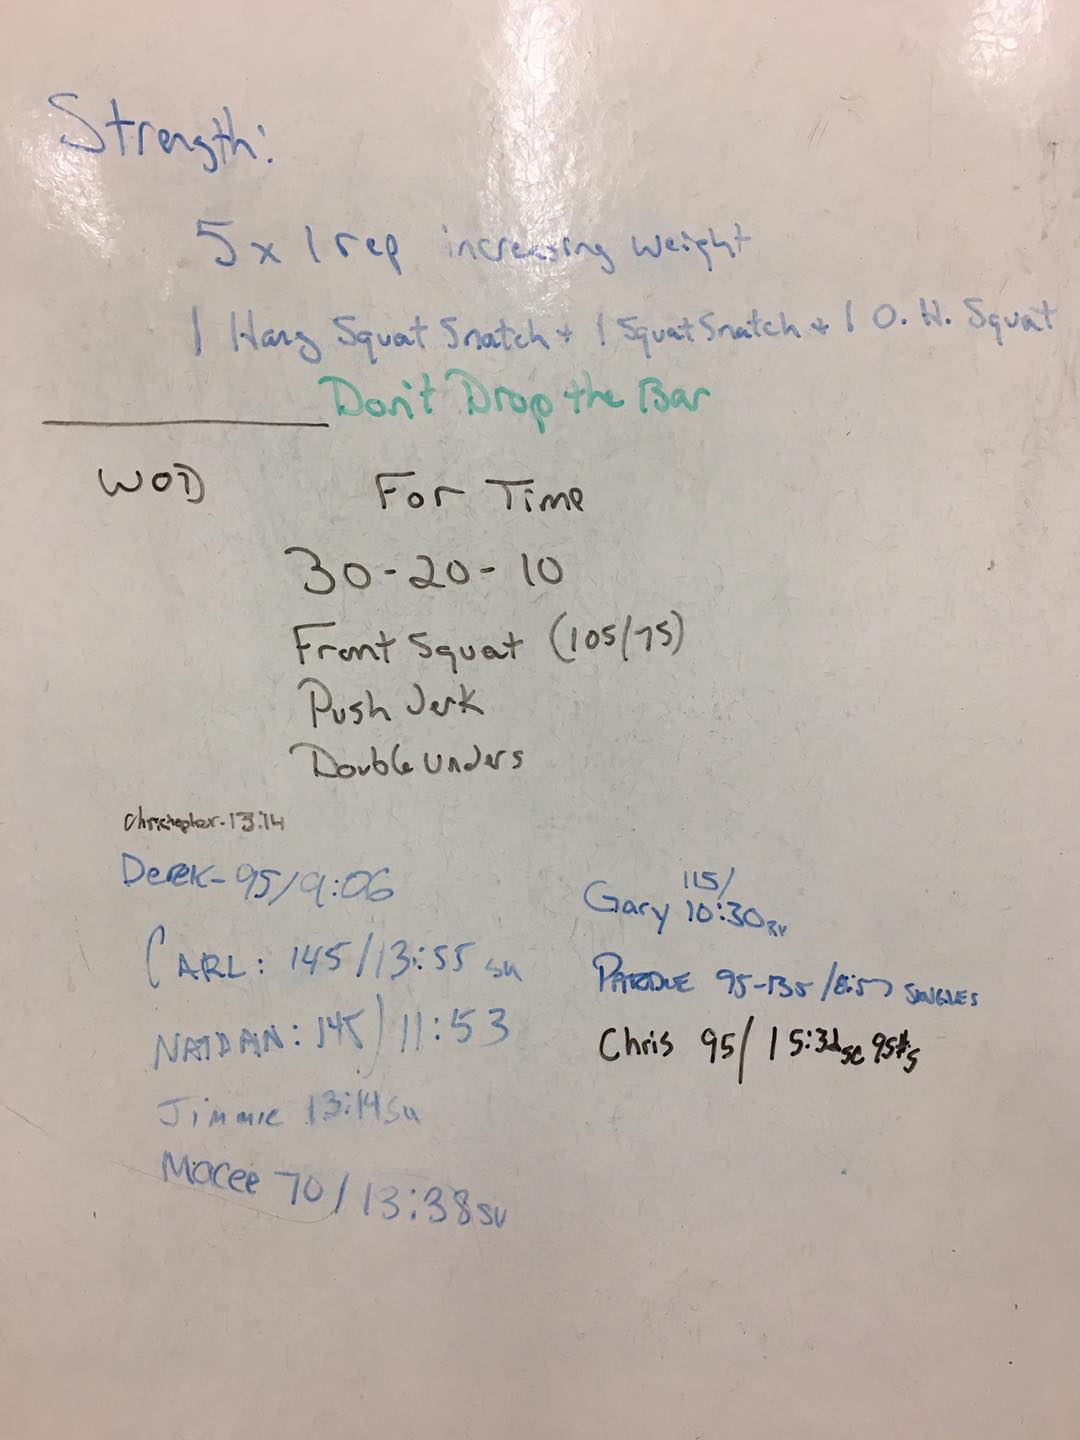 Strength:
5 x 1 rep increasing weight
1 Hang Squat Snatch + 1 Squat Snatch + 1 O.H. Squat
Don't Drop the Bar
WOD
For Time
30-20-10
Front Squat (105/75)
Push Jerk
Double Unders
Christopher-13:14
Derek-95/9:06
CARL: 145/13:55 SU
NATDAN: 145/11:53
Jimmie 13:14 SU
Macee 70/13:38 SU
115/
Gary 10:30
PARDUE 95-135/8:57 SINGLES
Chris 95/15:32 SC 95#s